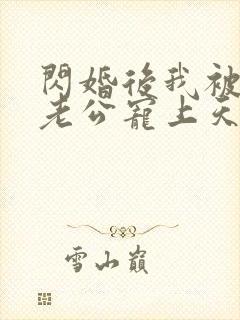 閃婚後我被
老公寵上天
雪山巔